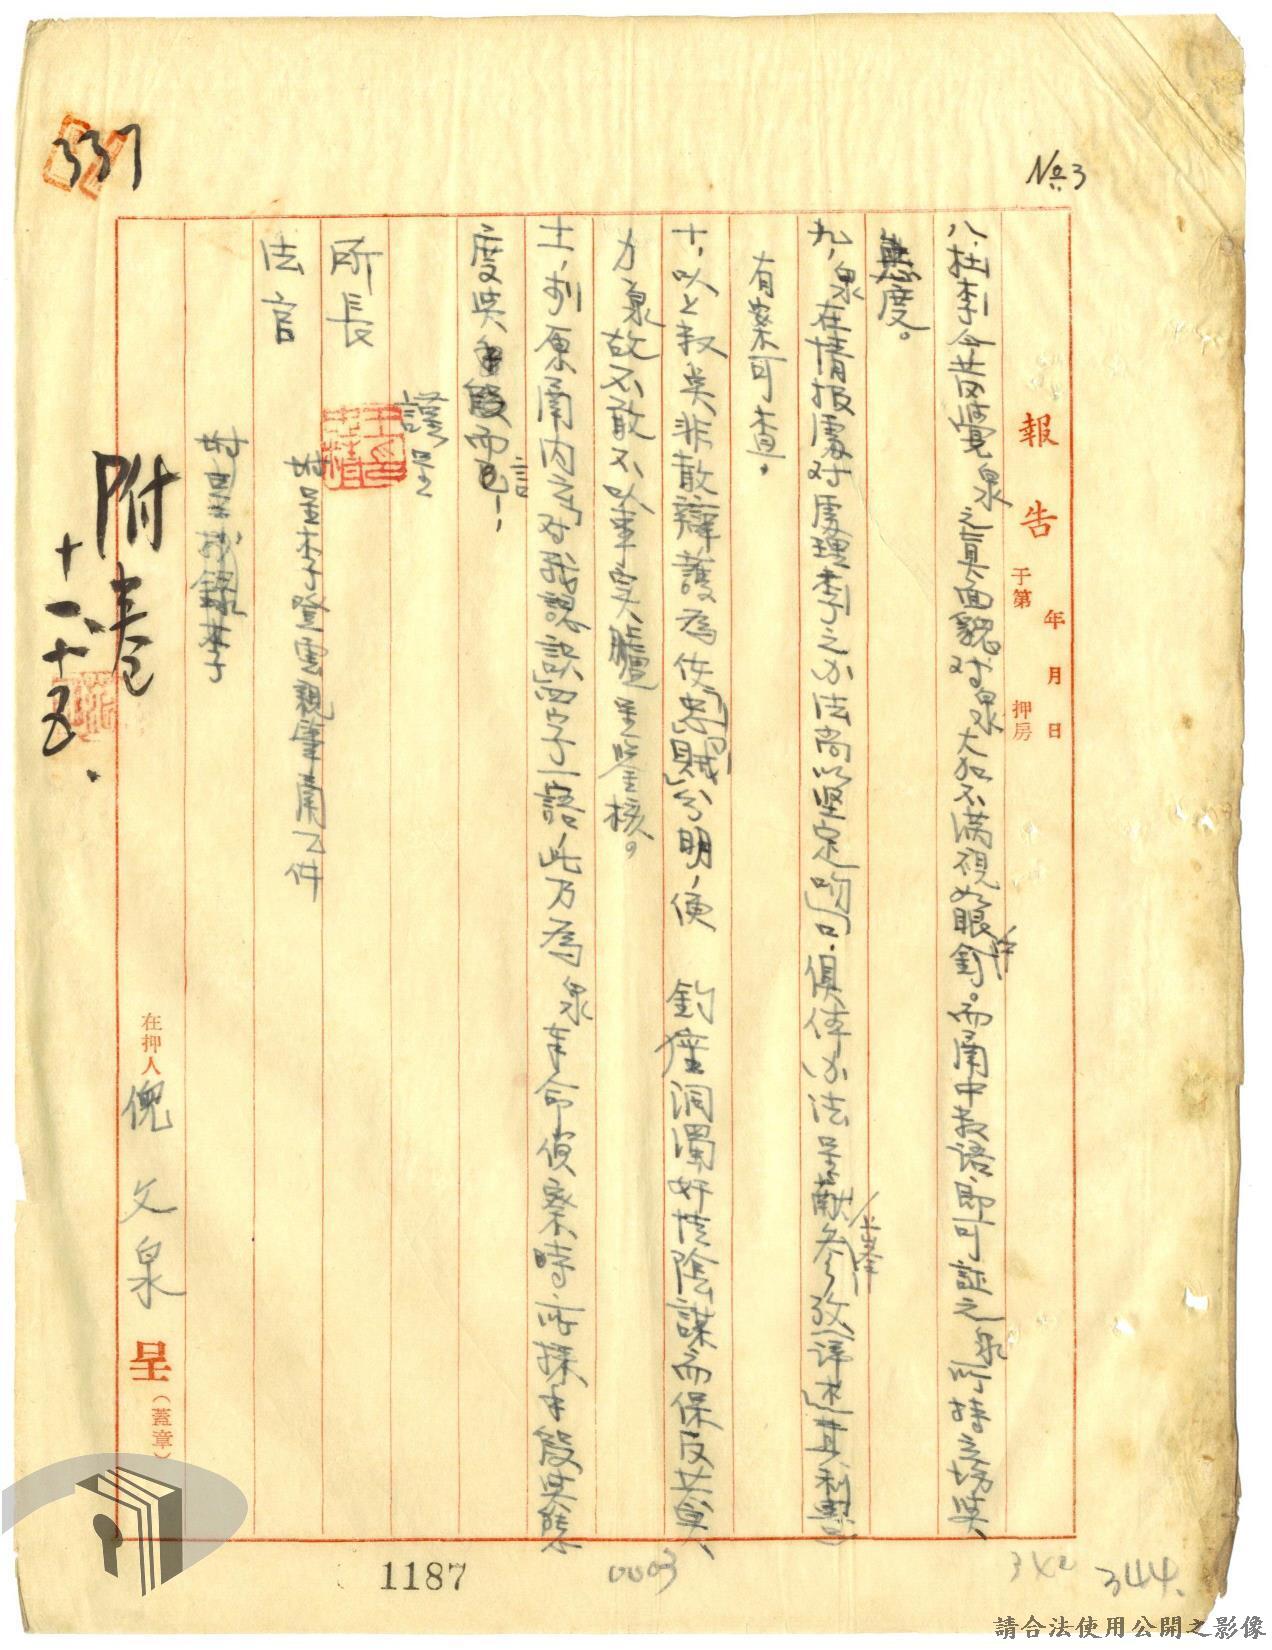 337
No. 3
報告
于第 押房
年 月 日
八、杜李今昔覺泉之真面貌對泉大加不滿視如眼中釘。而函中数語即可証之泉所持立場與
態度。
九、泉在情报處对處理李之办法尚以坚定吻口,俱体办法呈献上峯参攷(諦述其利害)
有案可查。
十、以上叙矣非敢辯護為使「忠」「賊」分明,使 鈞座洞濁奸情陰謀而保反共實
力泉故不敢不以事实臚呈鑒核。
十一、於原函内云对我認誤四字一語,此乃為泉奉命偵察時所採手段與態
度與手段而已!
謹呈
所長
法官
附呈李登雲親筆函乙件
附呈抄錄李
附卷
十一、十五.
在押人 倪文泉 呈(蓋章)
1187
0003
342
344.
請合法使用公開之影像